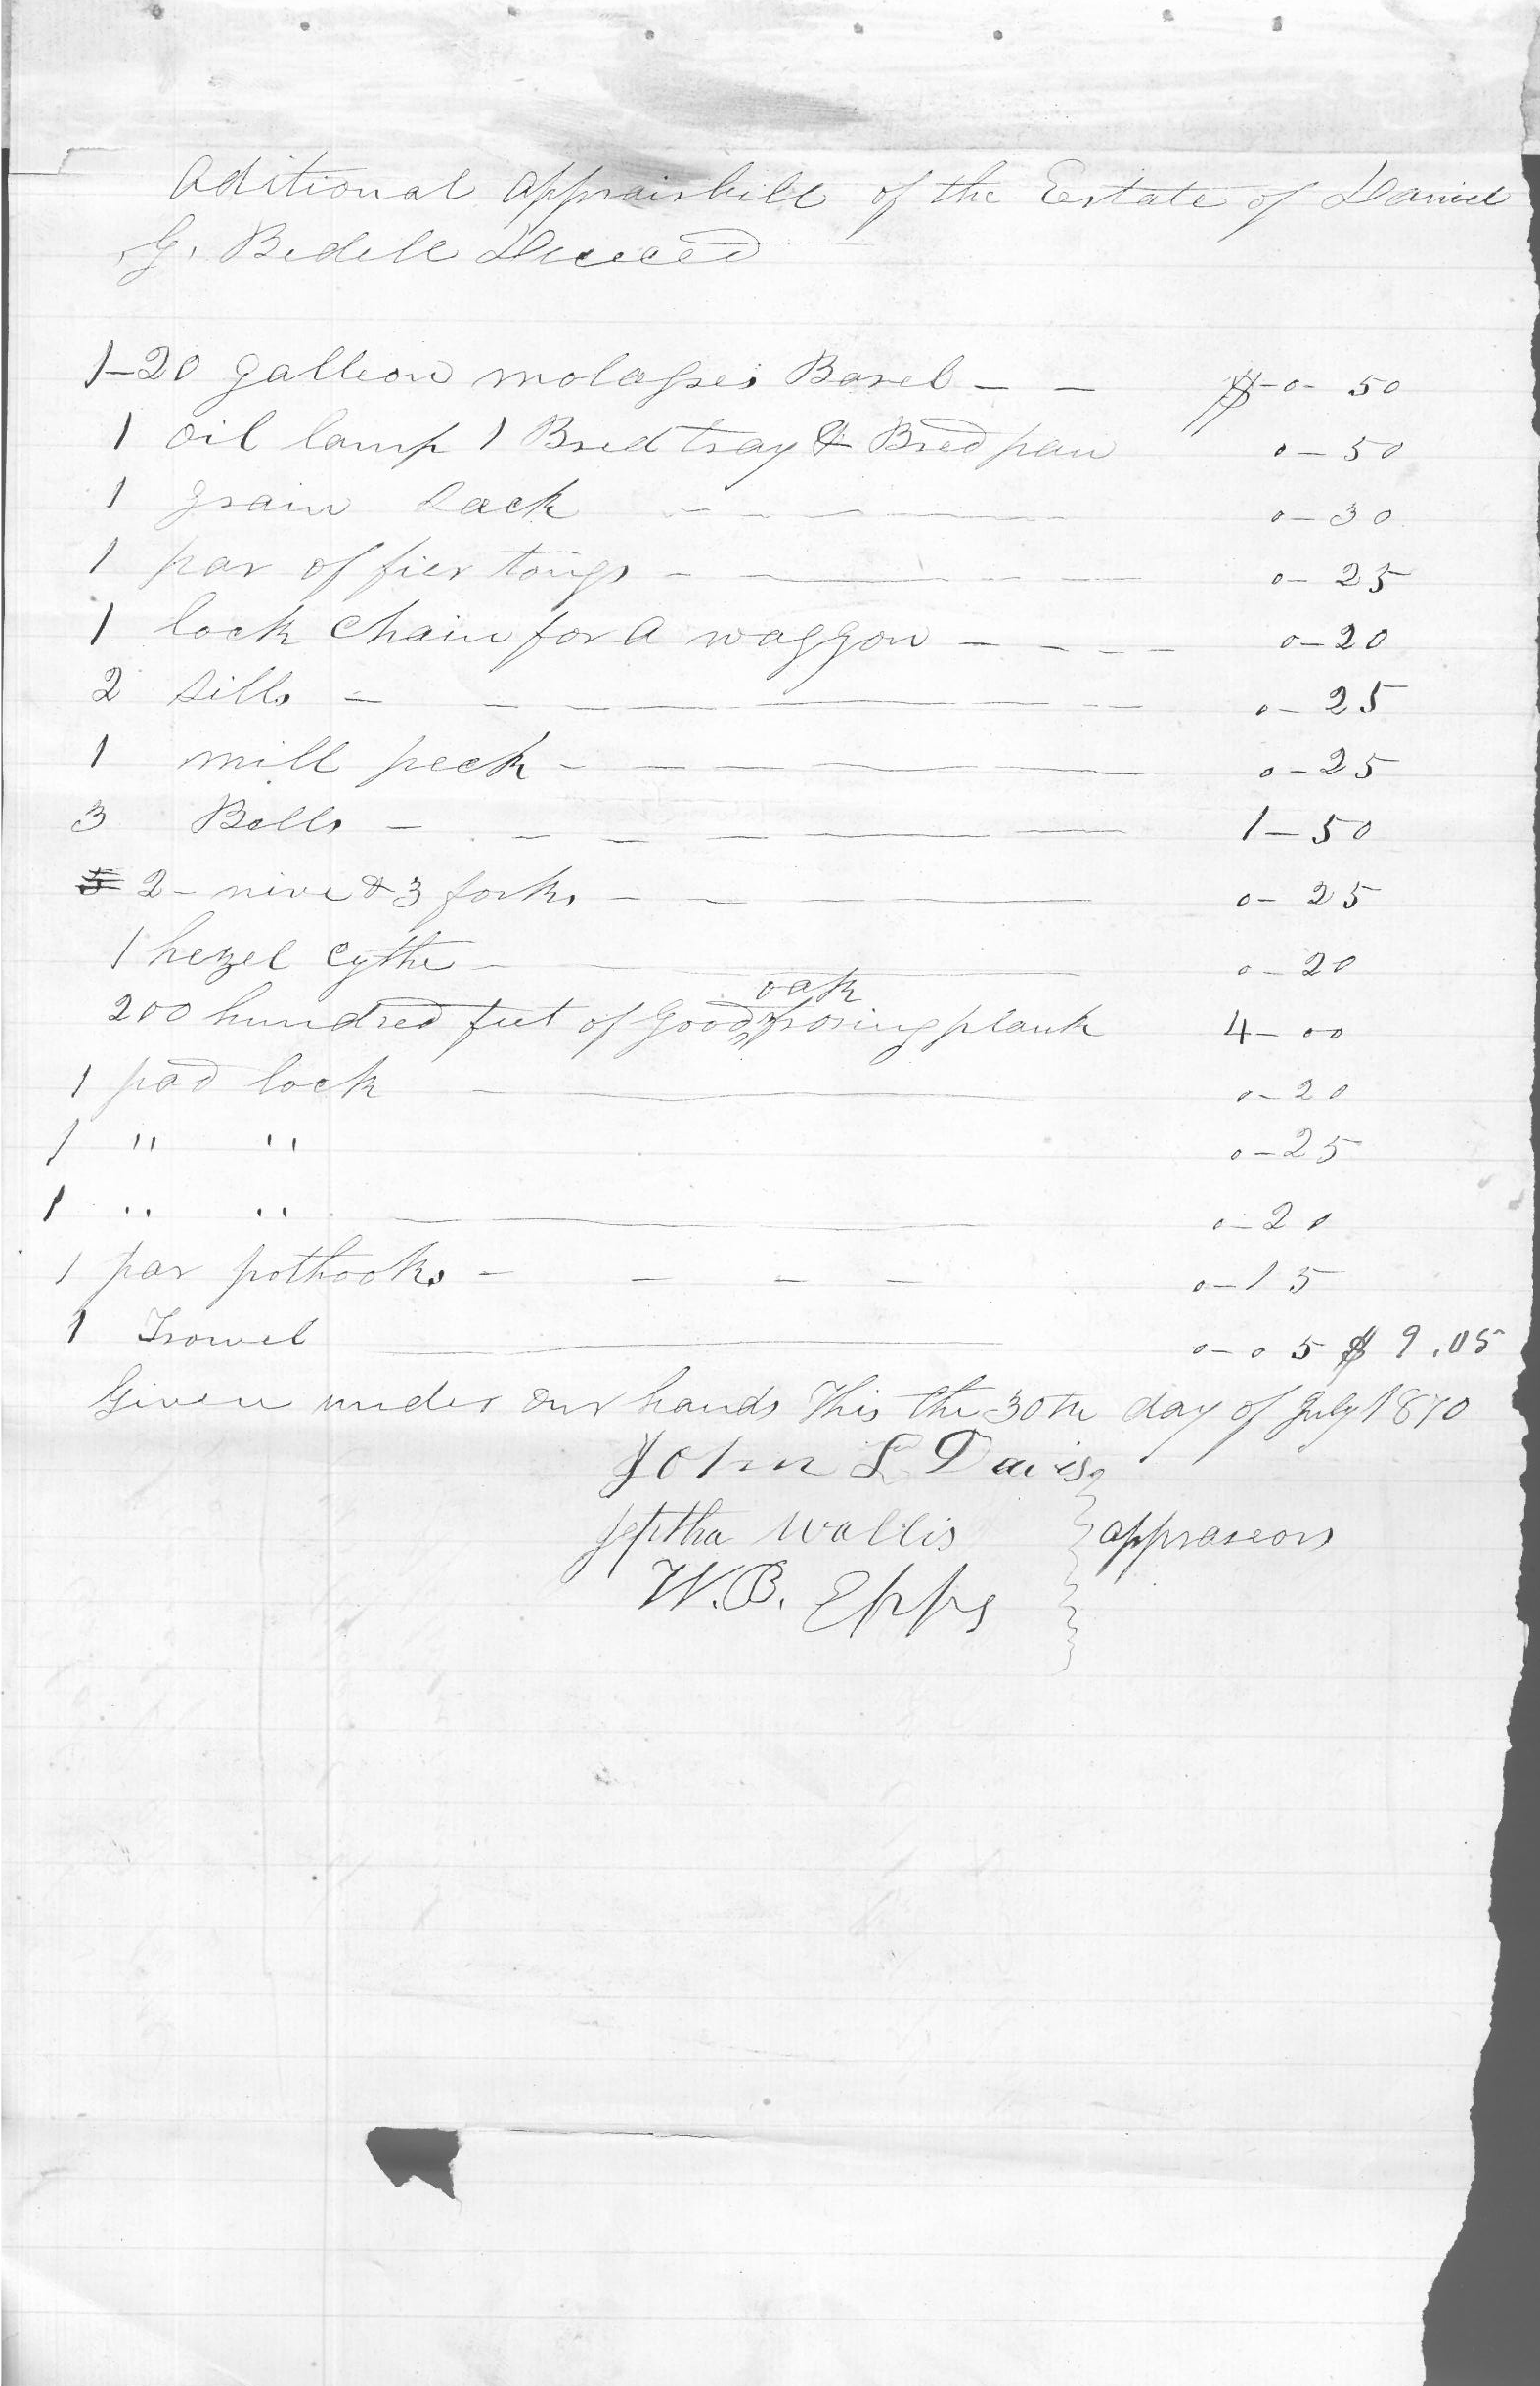 Aditional appraisbill of the Estate of Daniel
G. Bedell Dececed
1-20 galleon molasses Barel - - $-0- 50
1 oil lamp 1 Bred tray & Bred pan 0-50
1 grain sack - - - - 0-30
1 par of fier tongs - - - - 0-25
1 lock chain for a waggon - - - - 0-20
2 sills - - - - 0-25
1 mill peck - - - - 0-25
3 Bells - - - - 1-50
2- nive & 3 forks - - - 0-25
1 hezel cythe - - 0-20
200 hundred feet of good oak plank 4-00
1 pad lock - - 0-20
1 " " 0-25
1 " " - 0-20
1 par pothooks - - - - 0-15
1 Trowel - 0-05 $ 9.05
Given under our hands This the 30th day of July 1870
John L Davis
Jeptha Wallis appraseors
W.B. Epps